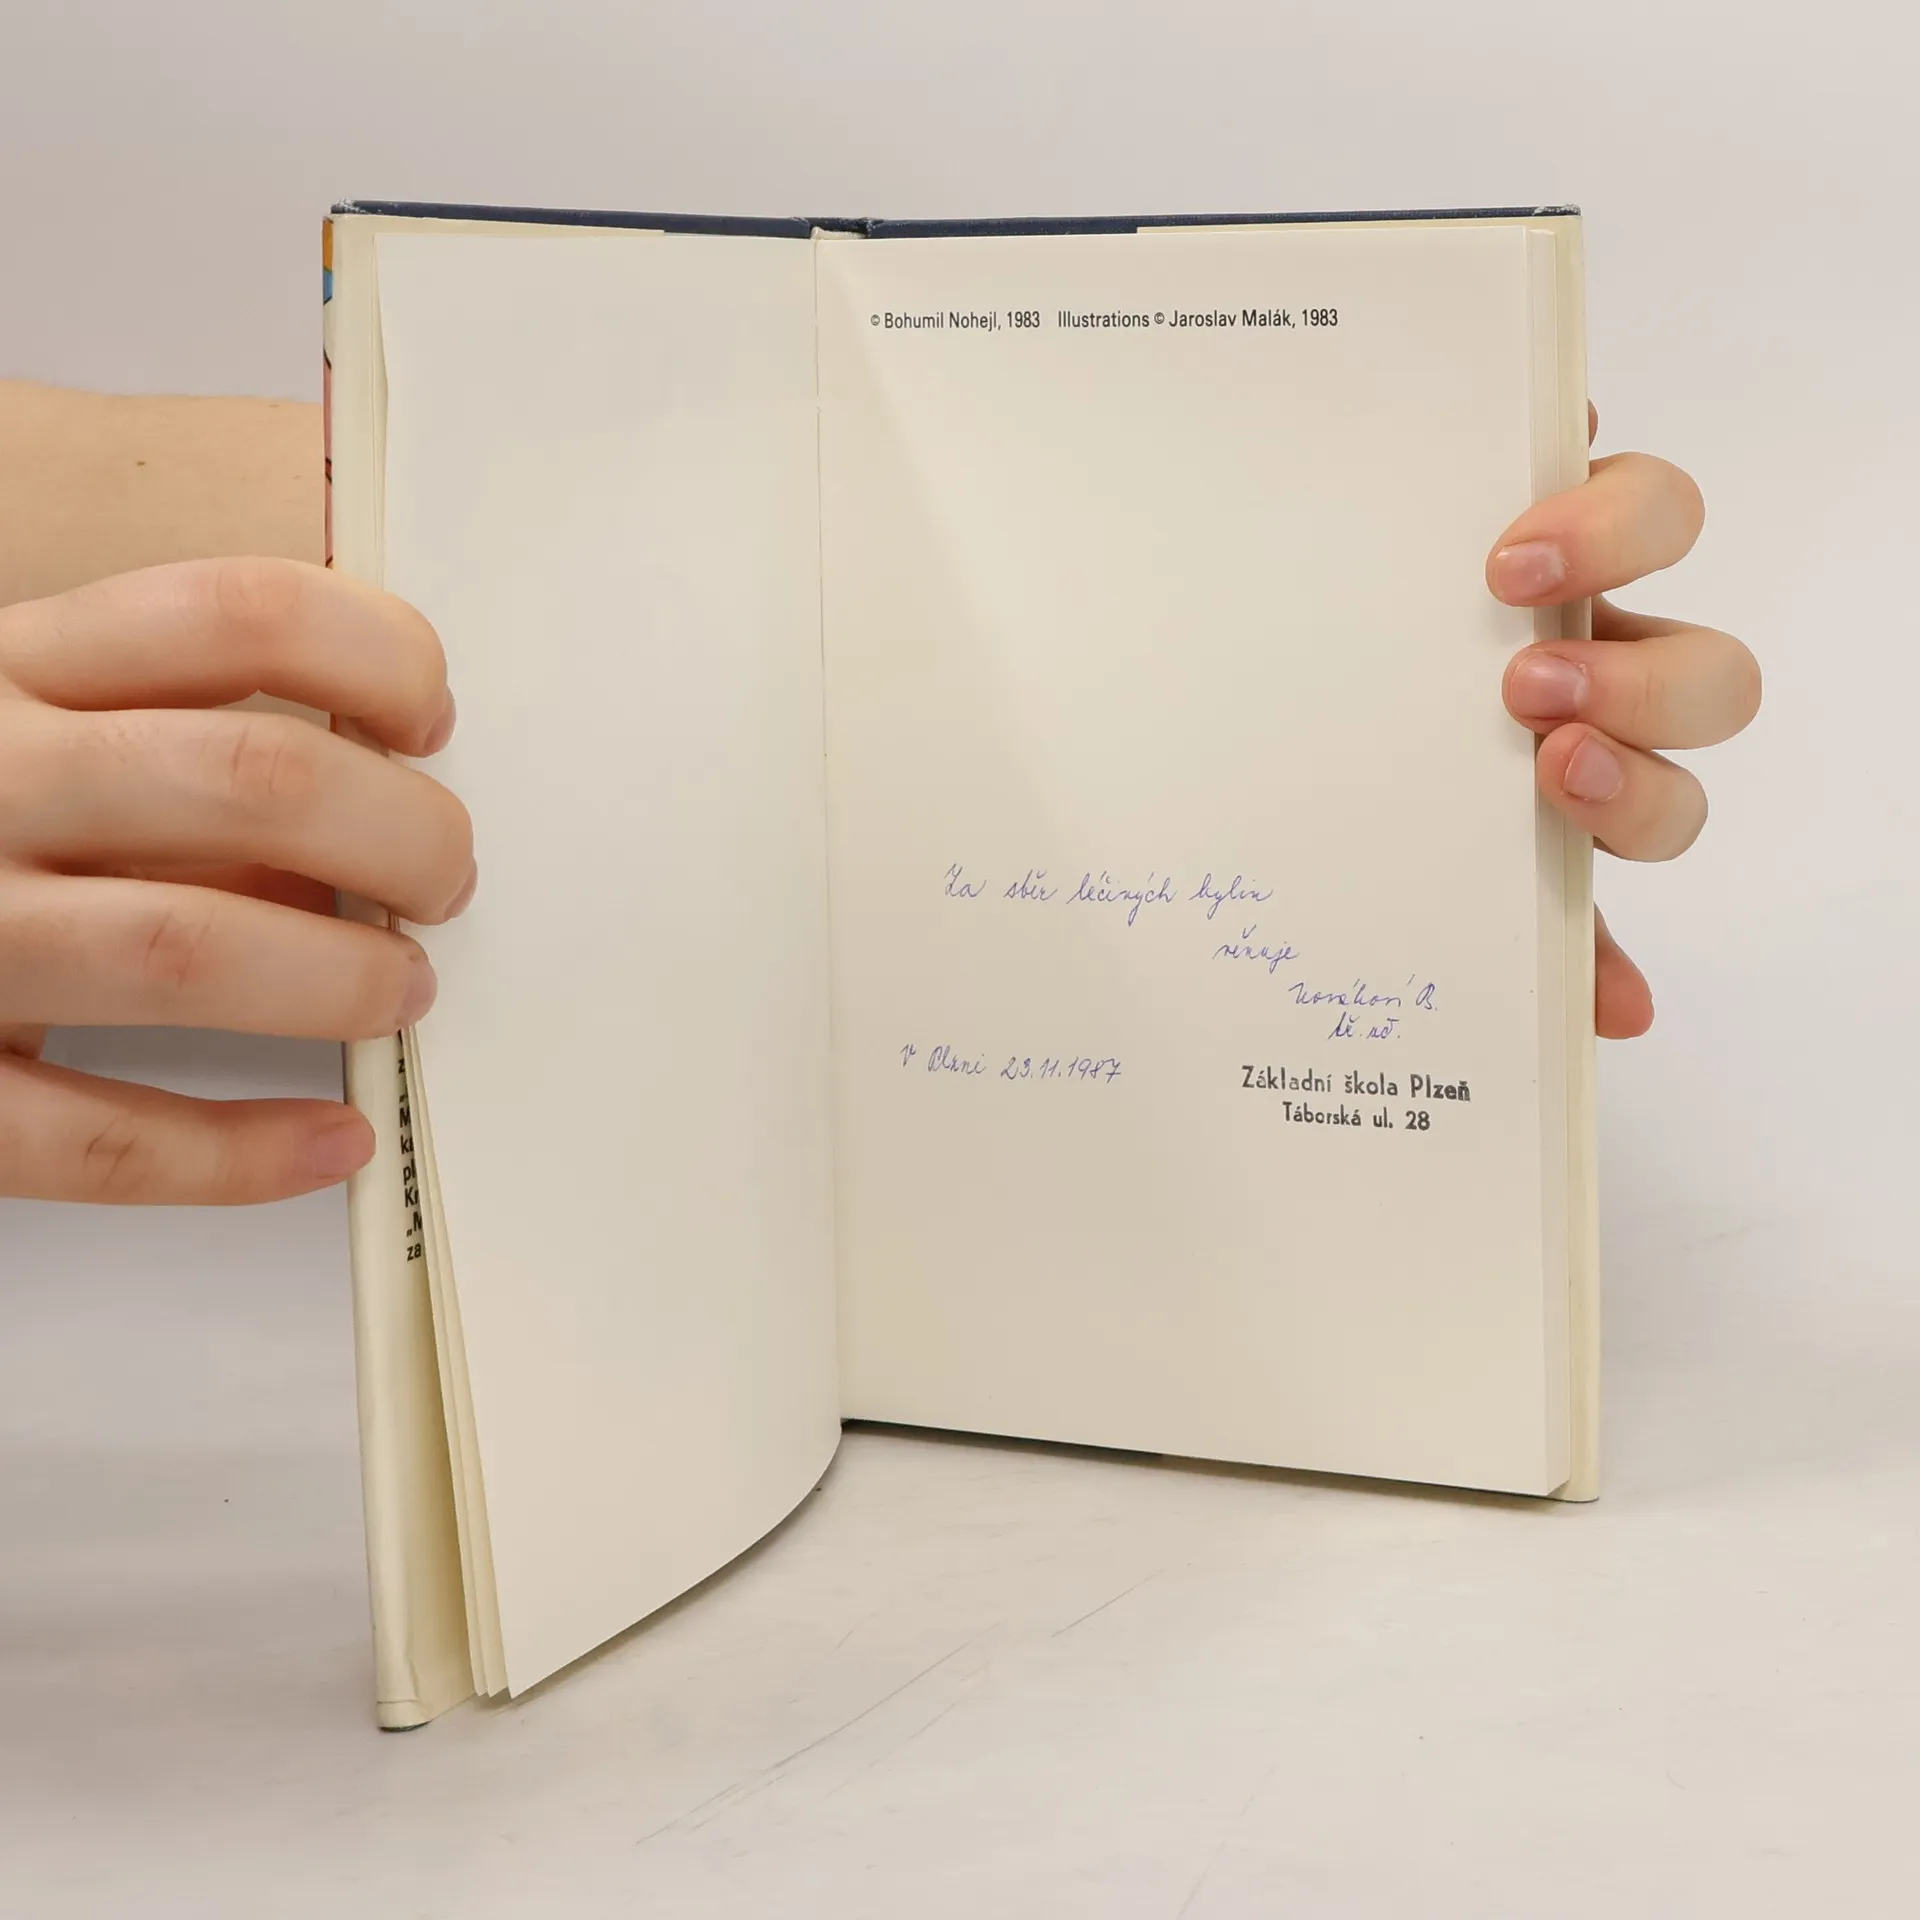 © Bohumil Nohejl, 1983 Illustrations © Jaroslav Malák, 1983
Za sběr léčivých bylin
věnuje
Nováková B.
tř. uč.
V Plzni 23.11.1987
Základní škola Plzeň
Táborská ul. 28